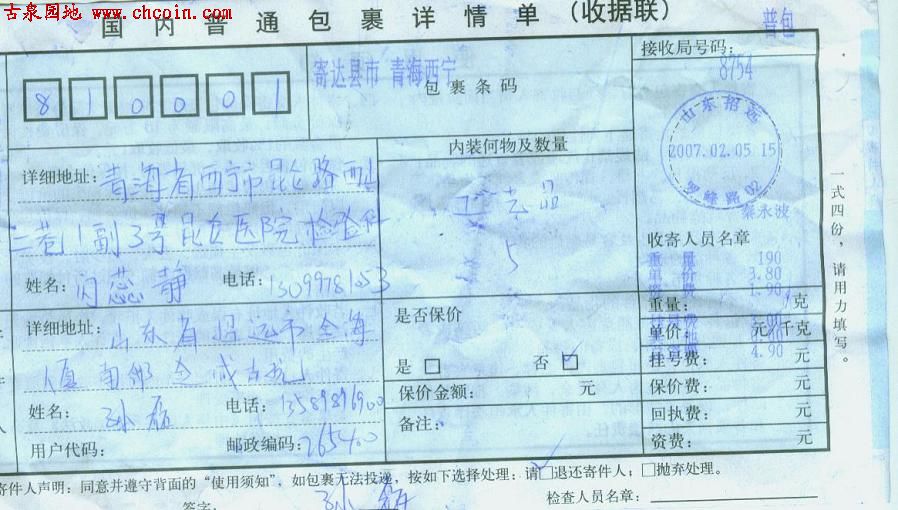 古泉园地 www.chcoin.com
国内普通包裹详情单（收据联）
普包
810001
寄达县市 青海西宁
包裹条码
接收局号码：
8754
山东招远
2007.02.05 15
罗峰路02
秦永波
收寄人员名章
详细地址：青海省西宁市昆仑路西
三巷1副3号昆仑医院检验科
姓名：闪蕊静 电话：13099781253
内装何物及数量
工艺品
5
重量 190
单价 3.80
1.90
重量： 克
单价： 元/千克
挂号费： 元
4.90
保价费： 元
回执费： 元
资费： 元
详细地址：山东省招远市金海
大厦南邻
姓名：孙磊 电话：13589896900
用户代码： 邮政编码：265400
是否保价
是 □ 否 ☑
保价金额： 元
备注：
一式四份，请用力填写。
寄件人声明：同意并遵守背面的“使用须知”，如包裹无法投递，按如下选择处理：请□退还寄件人；□抛弃处理。
签字：
检查人员名章：